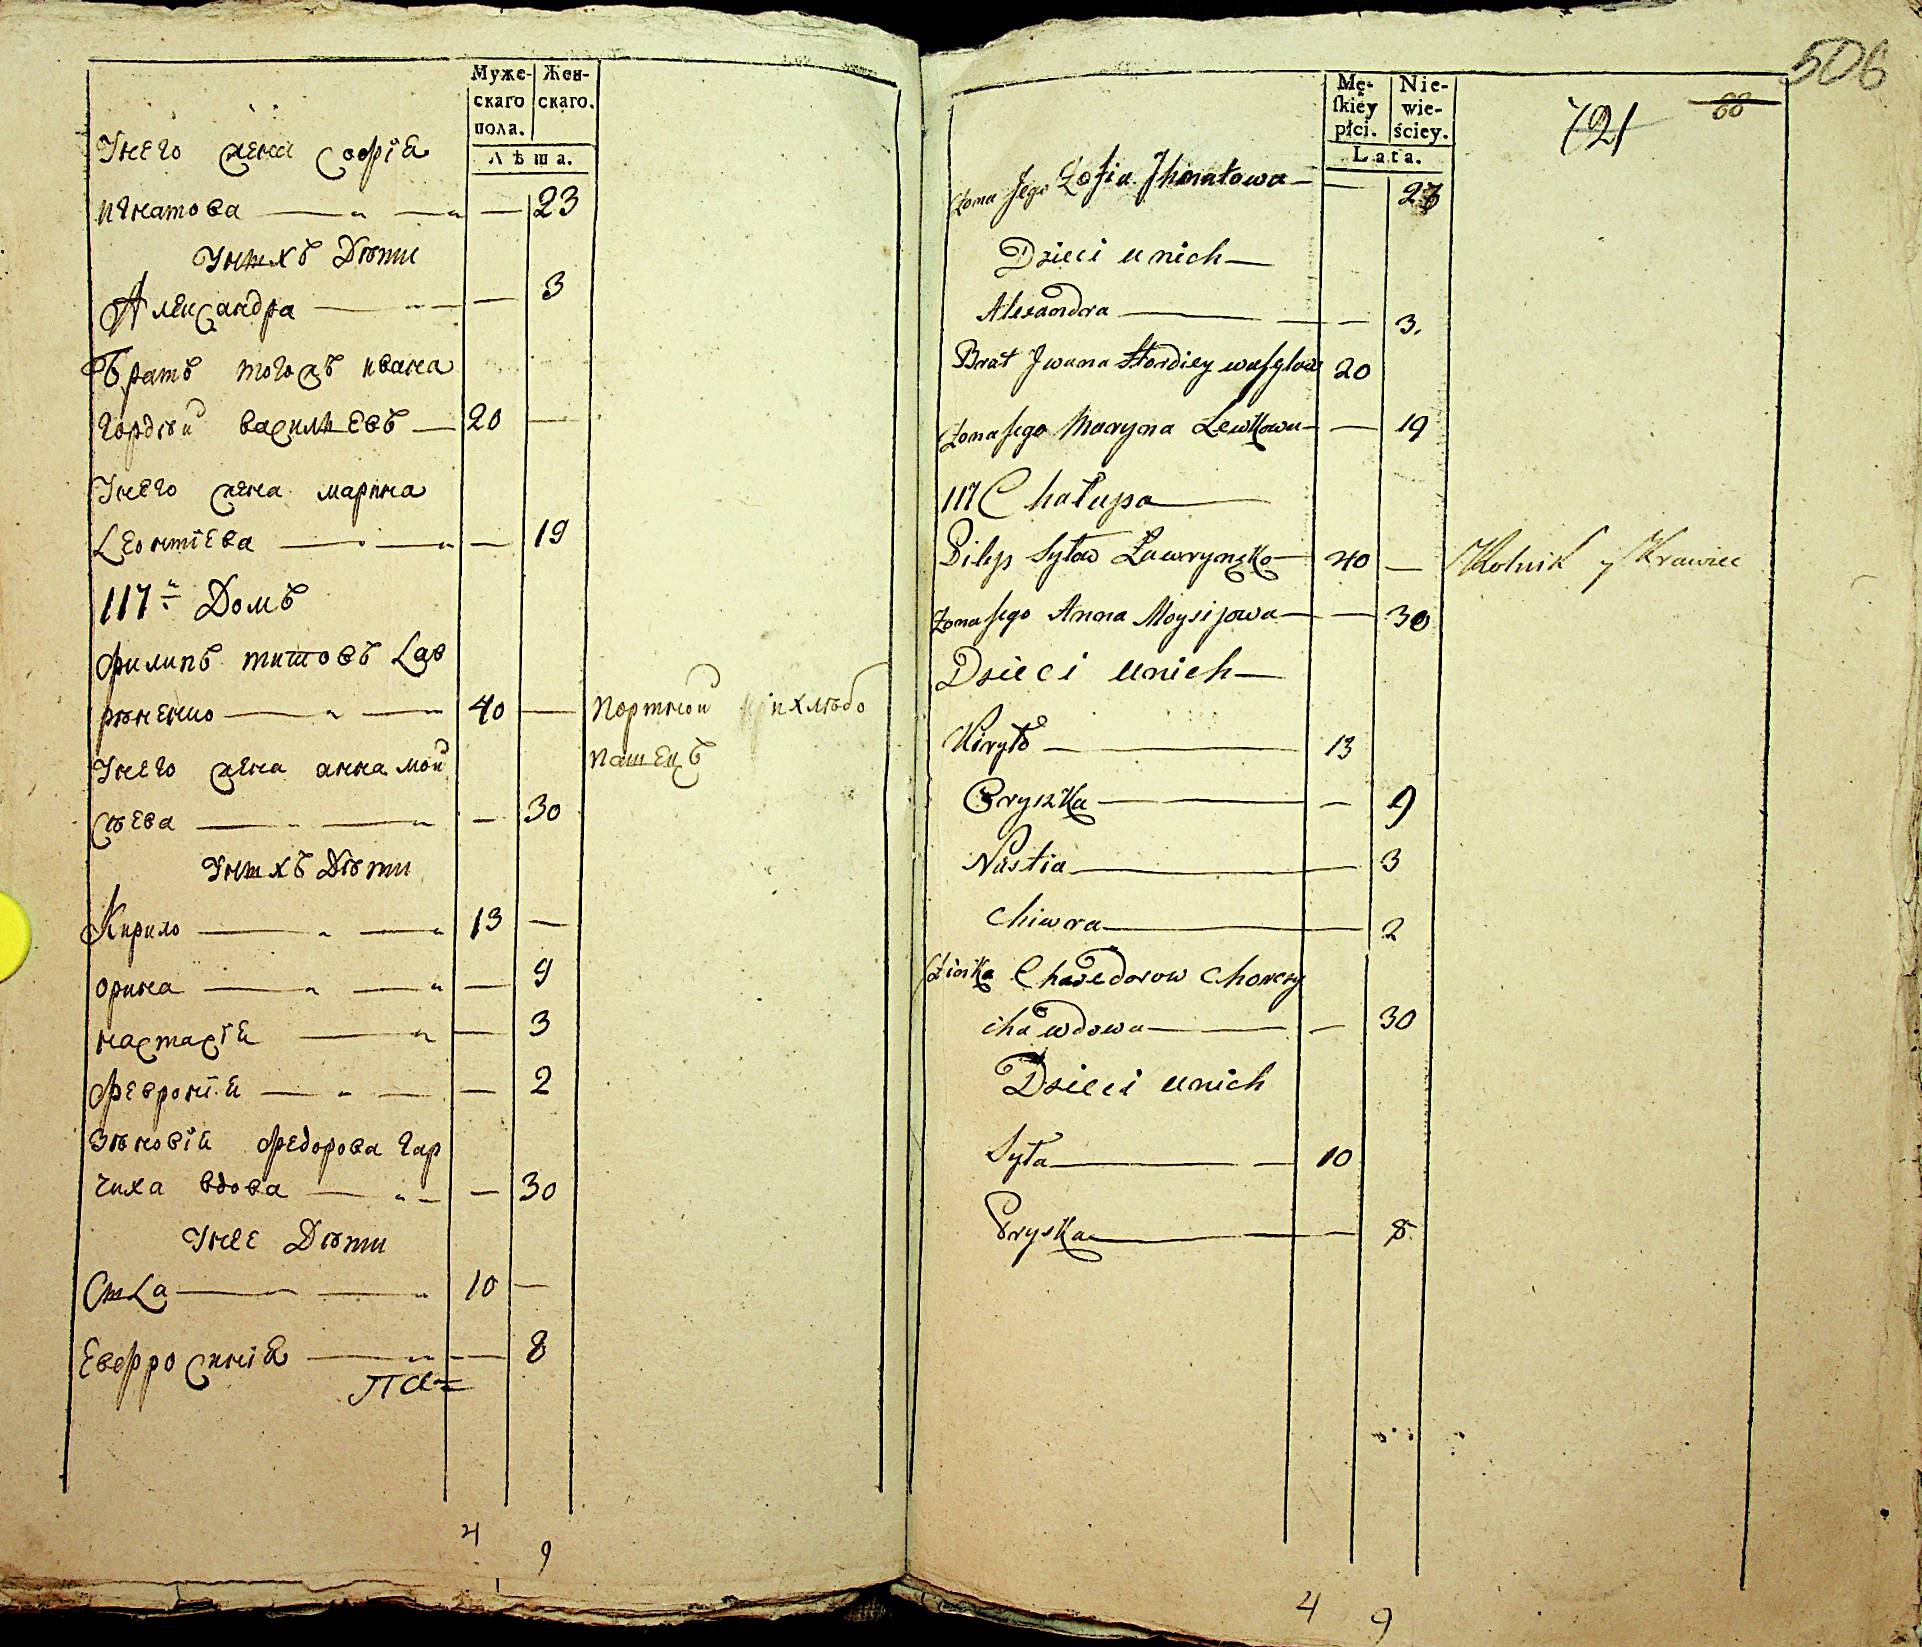 Муже- Жен-
скаго скаго.
пола.
Лѣта.
Унего жена Софія
игнатова — — — 23
Унихъ Дѣти
Александра — — — 3
Братъ тогожъ ивана
Гордѣй васильевъ — 20 —
Унего жена марина
Леонтіева — — — 19
117й Домъ
Филипъ титовъ Лав
рѣненко — — 40 — Портной и хлѣбо
пашецъ
Унего жена анна мой
сѣева — — — 30
Унихъ Дѣти
Кирило — — 13 —
орина — — — 9
настасія — — 3
Февронія — — — 2
Зѣновія Федорова Гар
чиха вдова — — — 30
Унее Дѣти
Сила — — 10 —
Евфросинія — — 8
4
9
506
68
721
Mę- Nie-
skiey wie-
płci. ściey.
Lata.
Żona Jego Zofia Ihnatowa — — 23
Dzieci u nich —
Alexandra — — — 3.
Brat Jwana Hordiey wasylow 20
Żona Jego Maryna Lewkowa — — 19
117 Chałupa —
Pilip Syław Ławrynęko — 40 — Rolnik y Krawiec
Żona Jego Anna Moysijowa — — 30
Dzieci u nich —
Kiryło — — 13
Oryszka — — — 9
Nastia — — 3
Chiwra — — 2
Zinka Chwedorow Chorczy
cha wdowa — — — 30
Dzieci u nich
Syła — — 10
Pryska — — 8
4 9